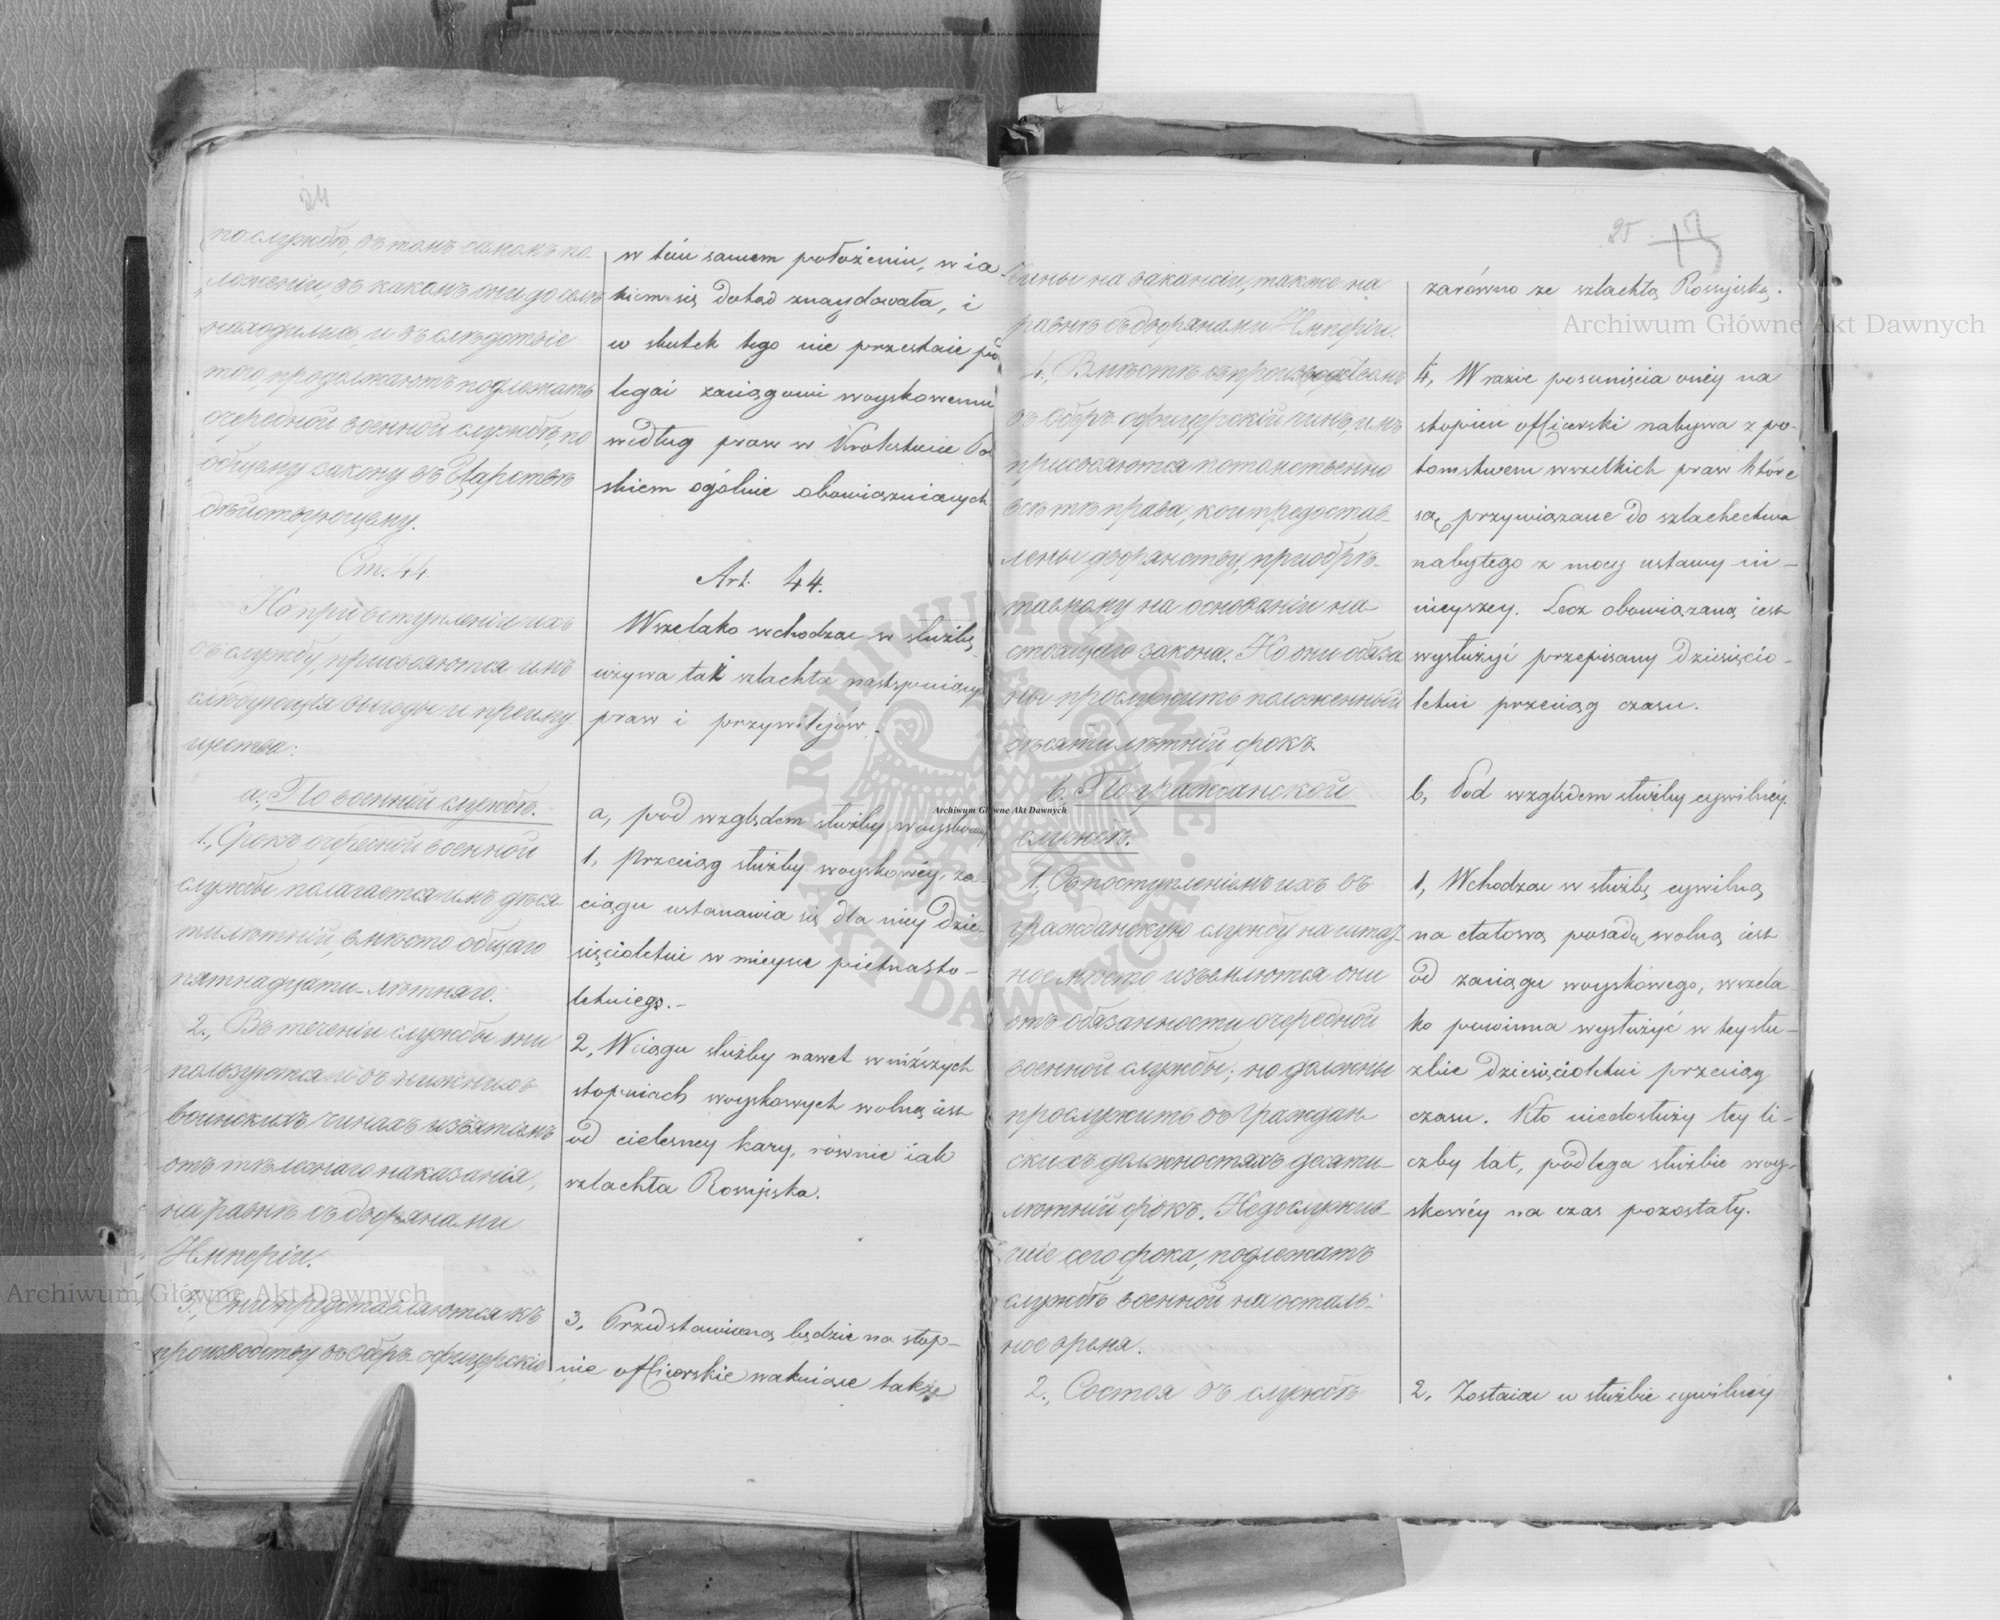 24
по службѣ, въ томъ самомъ по-
ложеніи, въ какомъ они до селѣ
находились, и въ слѣдствіе
того, продолжаютъ подлежать
очередной военной службѣ, по
общему закону въ Царствѣ
дѣйствующему.
Ст. 44
Но при вступленіи ихъ
въ службу, присвояются имъ
слѣдующія выгоды и преиму
щества:
а., По военной службѣ.
1., Срокъ очередной военной
службы полагается имъ деся-
тилѣтній, вмѣсто общаго
пятнадцати-лѣтняго.
2., Въ теченіи службы они
пользуются и въ нижнихъ
воинскихъ чинахъ изъятіемъ
отъ тѣлеснаго наказанія,
на равнѣ съ дворянами
Имперіи.
3., Они представляются къ
производству въ Оберъ-офицерскіе
w tém samem położeniu, w ia-
kiem się dotąd znaydowała, i
w skutek tego nie przestaie po
legać zaciągowi woyskowemu
według praw w Krolestwie Pol
skiem ogólnie obowiązuiących
Art. 44.
Wszelako wchodząc w służbę,
używa tak szlachta następuiących
praw i przywilejów.
a, pod względem służby woyskowey
1, Przeciąg służby woyskowéy, za-
ciągu ustanawia się dla niey dzie-
sięcioletni w mieysce pietnasto-
letniego.-
2, W ciągu służby nawet w niższych
stopniach woyskowych wolną iest
od cielesney kary, równie iak
szlachta Rossyjska.
3. Przedstawioną będzie na stop-
nie officerskie wakuiące także
25
чины на вакансіи, также на
равнѣ съ дворянами Имперіи.
4., Вмѣстѣ съ производствомъ
въ Оберъ-офицерскій чинъ, имъ
присвояются потомственно
всѣ тѣ права, кои предостав-
лены дворянству пріобрѣ-
таемому на основаніи на-
стоящаго закона. Но они обяза
ны прослужить положенный
десятилѣтній срокъ.
b. По гражданской
службѣ.
1, Съ поступленіемъ ихъ въ
гражданскую службу на штат-
ное мѣсто изъемлются они
отъ обязанности очередной
военной службы; но должны
прослужить въ Граждан-
скихъ должностяхъ десяти-
лѣтній срокъ. Недослужив-
шіе сего срока, подлежатъ
службѣ военной на осталь-
ное время.
2., Состоя въ службѣ
zarówno ze szlachtą Rossyiską.
4, W razie posunięcia onéy na
stopień officerski nabywa z po-
tomstwem wszelkich praw które
są przywiązane do szlachectwa
nabytego z mocy ustawy ni-
nieyszey. Lecz obowiązaną iest
wysłużyć przepisany dziesięcio-
letni przeciąg czasu.
b, Pod względem służby cywilnéy.
1, Wchodząc w służbę cywilną
na etatową posadę wolną iest
od zaciągu woyskowego, wszela-
ko powinna wysłużyć w tey słu-
żbie dziesięcioletni przeciąg
czasu. Kto niedosłuży tey li-
czby lat, podlega służbie woy-
skowéy na czas pozostały.
2. Zostaiąc w służbie cywilnéy
Archiwum Główne Akt Dawnych
Archiwum Główne Akt Dawnych
Archiwum Główne Akt Dawnych
ARCHIWUM GŁÓWNE AKT DAWNYCH